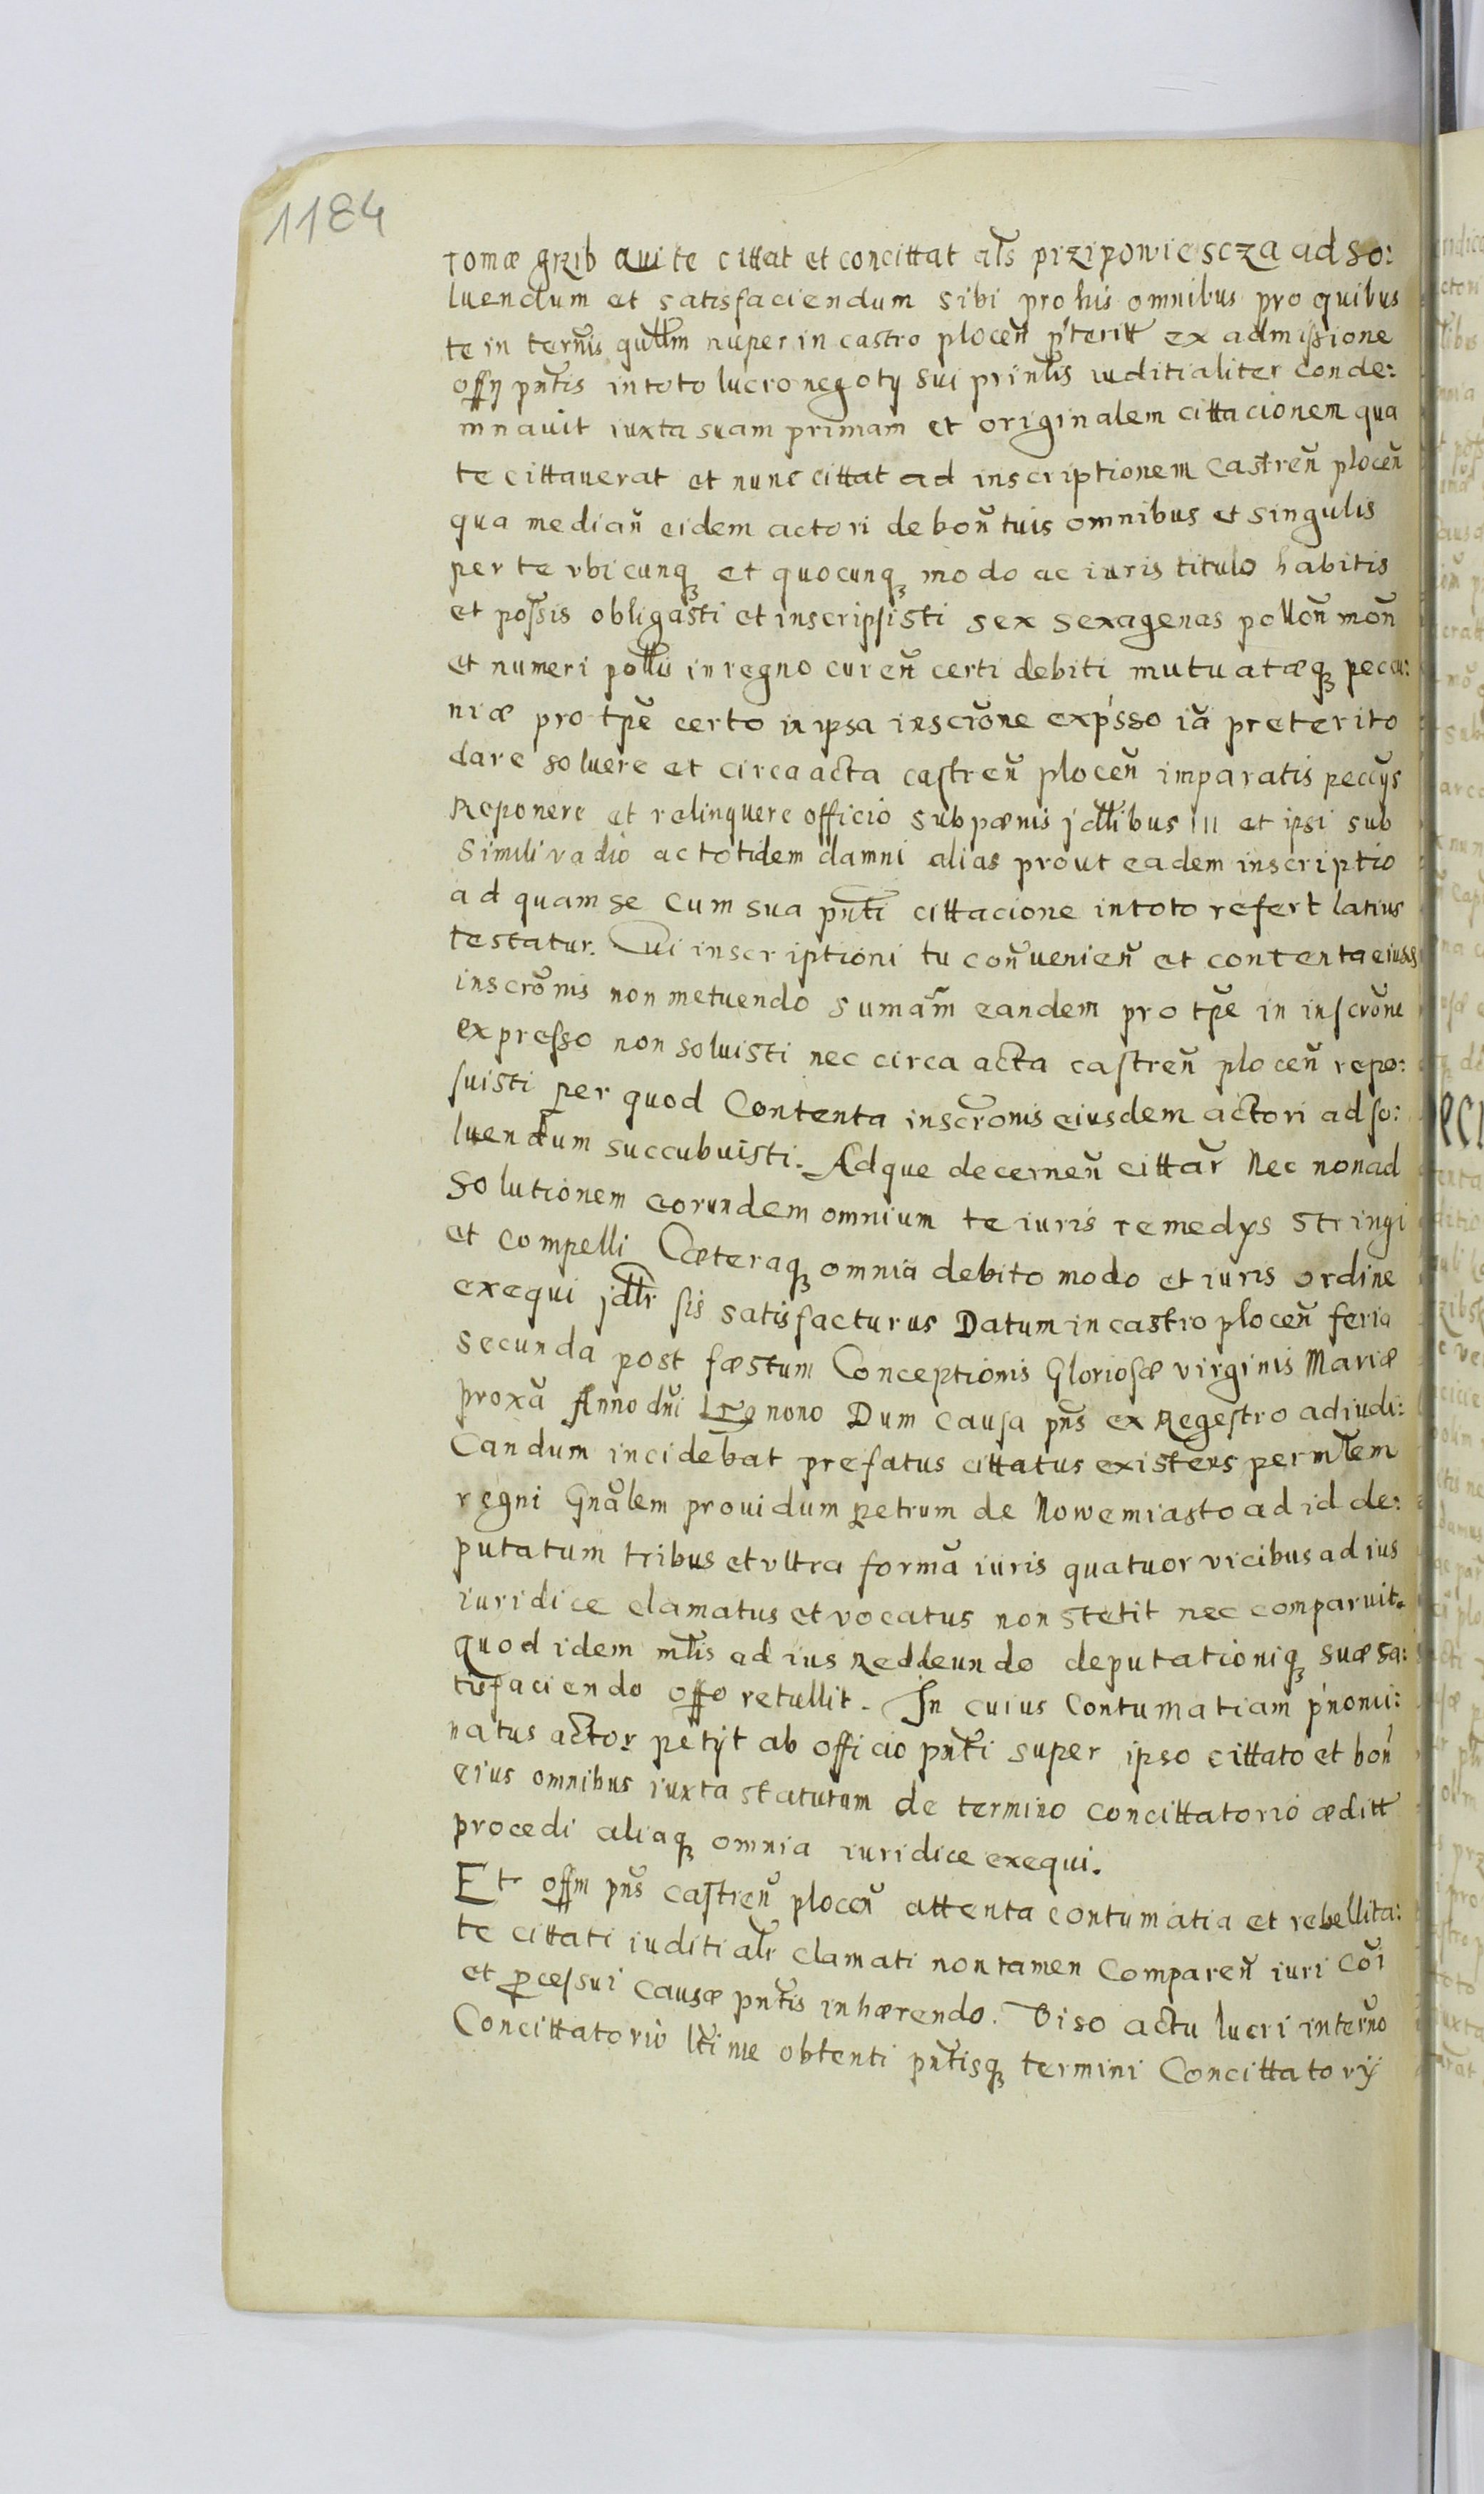 1184
romæ grzib qui te cittat et concittat als przipowiescza ad so:
luendum et satisfaciendum sibi pro his omnibus pro quibus
te in terñis quttm nuper in castro ploceñ p'teritt ex admissione
offy pñtis in toto lucro negoty sui prin̄tis iuditialiter conde:
mnauit iuxta suam primam et originalem cittacionem qua
te cittauerat et nunc cittat ad inscriptionem castreñ ploceñ
qua mediañ eidem actori de boñ tuis omnibus et singulis
per te vbicunq et quocunq modo ac iuris titulo habitis
et possis obligasti et inscripsisti sex sexagenas polloñ moñ
et numeri pollis in regno cureñ certi debiti mutuatæq pecu:
niæ pro tp̄e certo in ipsa inscr̄one exp'sso iā preterito
dare soluere et circa acta castreñ ploceñ imparatis peccys
Reponere et relinquere officio sub pænis jdtlibus III et ipsi sub
simili vadio ac totidem damni alias prout eadem inscriptio
ad quam se cum sua pñti cittacione in toto refert latius
testatur. Cui inscriptioni tu conueniēn et contenta eiuss
inscr̄onis non metuendo sumam̄ eandem pro tp̄e in inscr̄one
expresso non soluisti nec circa acta castreñ ploceñ repo:
suisti per quod Contenta inscr̄onis eiusdem actori ad so:
luendum succubuisti. Ad que decerneñ cittar̄ Nec non ad
solutionem eorundem omnium te iuris remedys stringi
et compelli Cæteraq omnia debito modo et iuris ordine
exequi jdtr sis satisfacturus Datum in castro ploceñ feria
secunda post fæstum Conceptionis Gloriosæ virginis Mariæ
proxā Anno dñi nono Dum causa pñs ex Regestro adiudi:
Candum incidebat prefatus cittatus existens per mltem
regni Gnālem prouidum petrum de Nowemiasto ad id de:
putatum tribus et vltra formā iuris quatuor vicibus ad ius
iuridice clamatus et vocatus non stetit nec comparuit.
quod idem mltis ad ius Reddeundo deputationiq suæ sa:
tisfaciendo offo retullit. In cuius Contumatiam p'nomi:
natus actor petyt ab officio pñti super ipso cittato et boñ
eius omnibus iuxta statutum de termino concittatorio æditt
procedi aliaq omnia iuridice exequi.
Et offm pñs castreñ ploceñ attenta contumatia et rebellita:
te cittati iuditialr clamati non tamen Compareñ iuri cōi
et pcessui Causæ pñtis inhærendo. Viso actu lucri in terño
Concittatorio ltime obtenti pñtisq termini Concittatorÿ